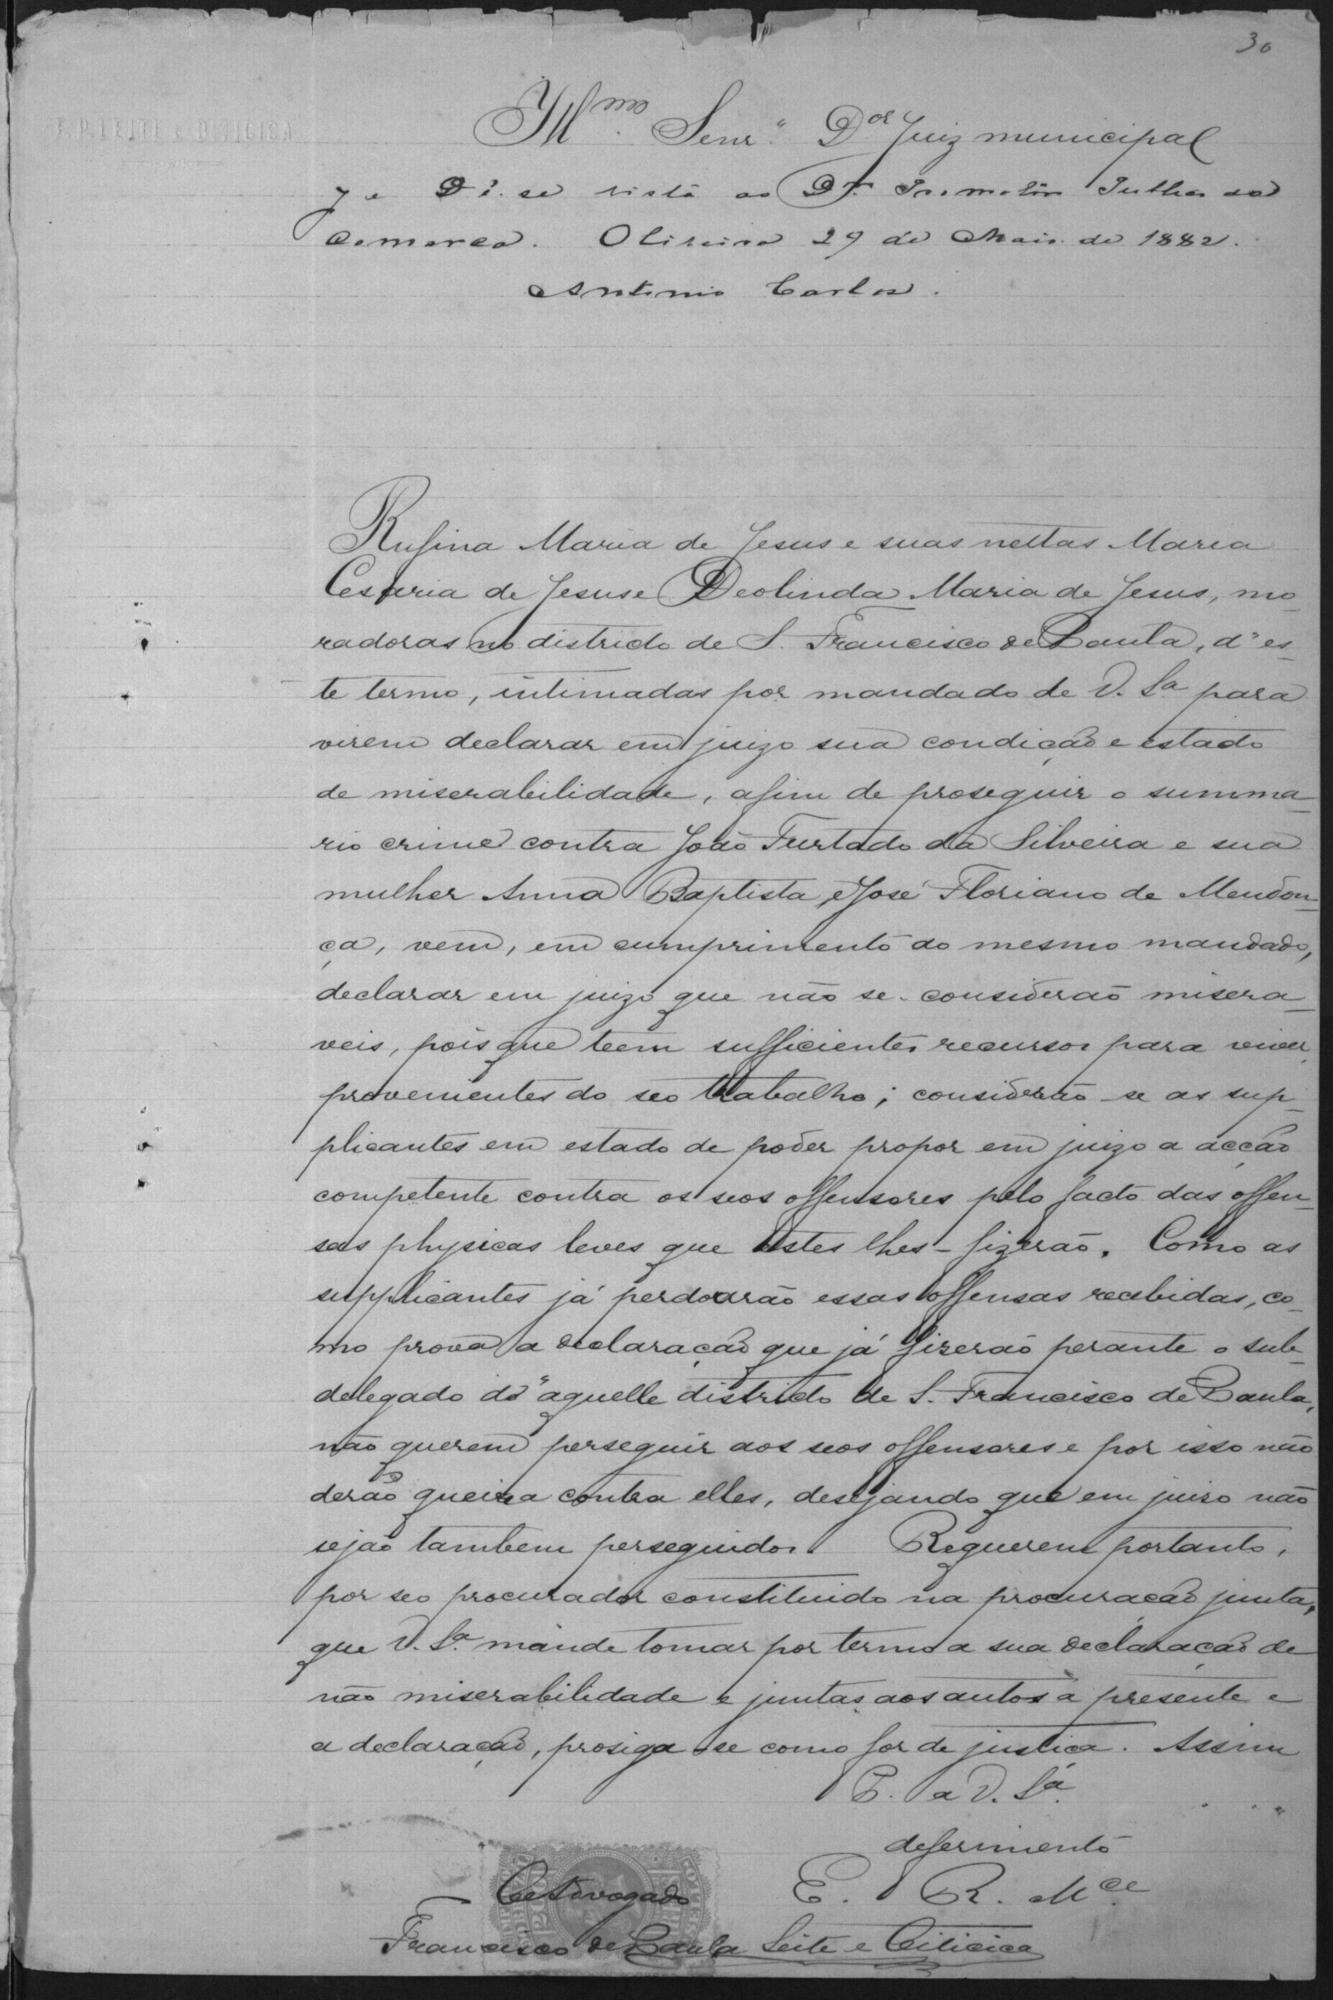 30
Illmo. Senr. Dor Juiz municipal
J. e D. se vista ao Dr. Promotor Publico da
Comarca. Oliveira 29 de Maio de 1882.
Antonio Carlos.
Rufina Maria de Jesus e suas nettas Maria
Cesaria de Jesus e Deolinda Maria de Jesus, mo-
radoras no districto de S. Francisco de Paula, d'es-
te termo, intimadas por mandado de V. Sa para
virem declarar em juizo sua condição e estado
de miserabilidade, afim de proseguir o summa-
rio crime contra João Furtado da Silveira e sua
mulher Anna Baptista, e José Floriano de Mendon-
ça, vem, em cumprimento do mesmo mandado,
declarar em juizo que não se considerão misera-
veis, pois que teem sufficientes recursos para viver,
provenientes do seo trabalho; considerão-se as sup-
plicantes em estado de poder propor em juizo a acção
competente contra os seos offensores pelo facto das offen-
sas physicas leves que estes lhes-fizerão. Como as
supplicantes já perdoarão essas offensas recebidas, co-
mo prova a declaração que já fizerão perante o sub-
delegado d'aquelle districto de S. Francisco de Paula,
não querem perseguir aos seos offensores e por isso não
derão queixa contra elles, desejando que em juizo não
sejão tambem perseguidos. Requerem portanto,
por seo procurador constituido na procuração junta,
que V. Sa. mande tomar por termo a sua declaração de
não miserabilidade e juntas aos autos a presente e
a declaração, prosiga-se como for de justiça. Assim
P. a V. Sa.
deferimento
E. R. Mce
O Advogado
Francisco de Paula Leite e Oiticica